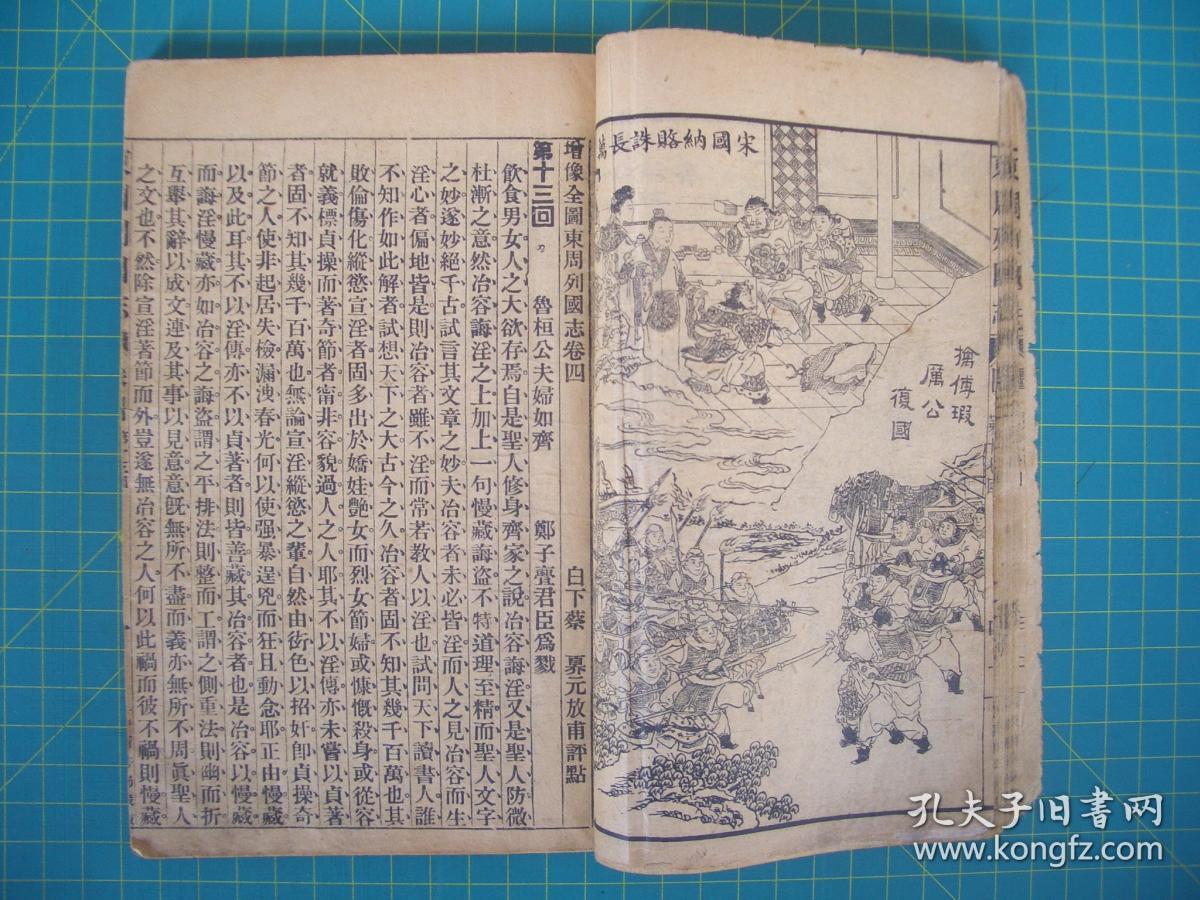 宋國納賂誅長萬
擒傅瑕
厲公
復國
增像全圖東周列國志卷四
白下蔡 奡元放甫評點
第十三回
魯桓公夫婦如齊
鄭子亹君臣爲戮
飲食男女人之大欲存焉自是聖人修身齊家之說冶容誨淫又是聖人防微
杜漸之意然冶容誨淫之上加上一句慢藏誨盜不特道理至精而聖人文字
之妙遂妙絕千古試言其文章之妙夫冶容者未必皆淫而人之見冶容而生
淫心者偏地皆是則冶容者雖不淫而常若教人以淫也試問天下讀書人誰
不知作如此解者試想天下之大古今之久冶容者固不知其幾千百萬也其
敗倫傷化縱慾宣淫者固多出於嬌娃艶女而烈女節婦或慷慨殺身或從容
就義標貞操而著奇節者甯非容貌過人之人耶其不以淫傳亦未嘗以貞著
者固不知其幾千百萬也無論宣淫縱慾之輩自然由衒色以招奸卽貞操奇
節之人使非起居失檢漏洩春光何以使强暴逞兇而狂且動念耶正由慢藏
以及此耳其不以淫傳亦不以貞著者則皆善藏其冶容者也是冶容以慢藏
而誨淫慢藏亦如冶容之誨盜謂之平排法則整而工謂之側重法則幽而折
互舉其辭以成文連及其事以見意意旣無所不盡而義亦無所不周眞聖人
之文也不然除宣淫著節而外豈遂無冶容之人何以此禍而彼不禍則慢藏
孔夫子旧书网
www.kongfz.com